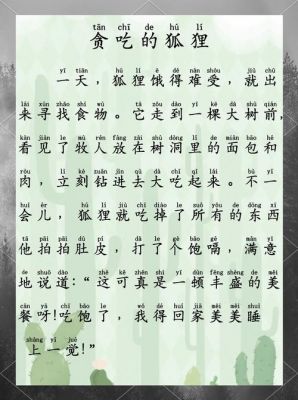 tān chī de hú lí
贪吃的狐狸
yī tiān hú lí è dé nán shòu jiù chū
一天，狐狸饿得难受，就出
lái xún zhǎo shí wù tā zǒu dào yì kē dà shù qián
来寻找食物。它走到一棵大树前，
kàn jiàn le mù rén fàng zài shù dòng lǐ de miàn bāo hé
看见了牧人放在树洞里的面包和
ròu lì kè zuān jìn qù dà chī qǐ lái bù yī
肉，立刻钻进去大吃起来。不一
huì ér hú lí jiù chī diào le suǒ yǒu de dōng xī
会儿，狐狸就吃掉了所有的东西
tā pāi pāi dù pí dǎ le gè bǎo gé mǎn yì
他拍拍肚皮，打了个饱嗝，满意
de shuō dào zhè kě zhēn shì yī dùn fēng shèng de měi
地说道：“这可真是一顿丰盛的美
cān yā chī bǎo le wǒ dé huí jiā měi měi shuì
餐呀!吃饱了，我得回家美美睡
shàng yī jué
上一觉!”